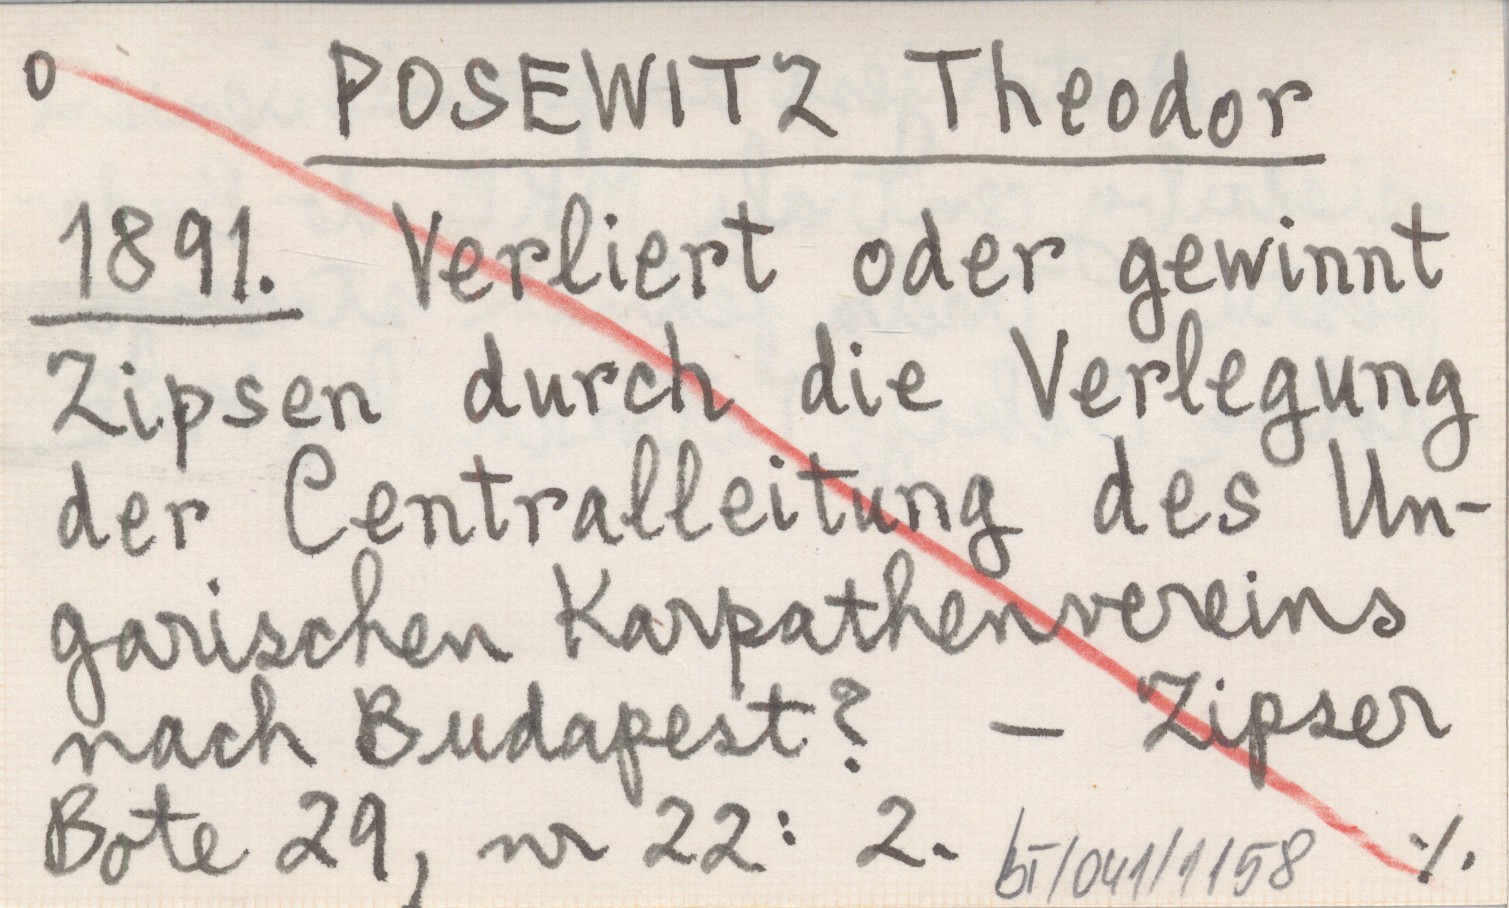 o POSEWITZ Theodor
1891. Verliert oder gewinnt
Zipsen durch die Verlegung
der Centralleitung des Un-
garischen Karpathenvereins
nach Budapest? — Zipser
Bote 29, nr 22: 2.
bT/041/1158 ./.